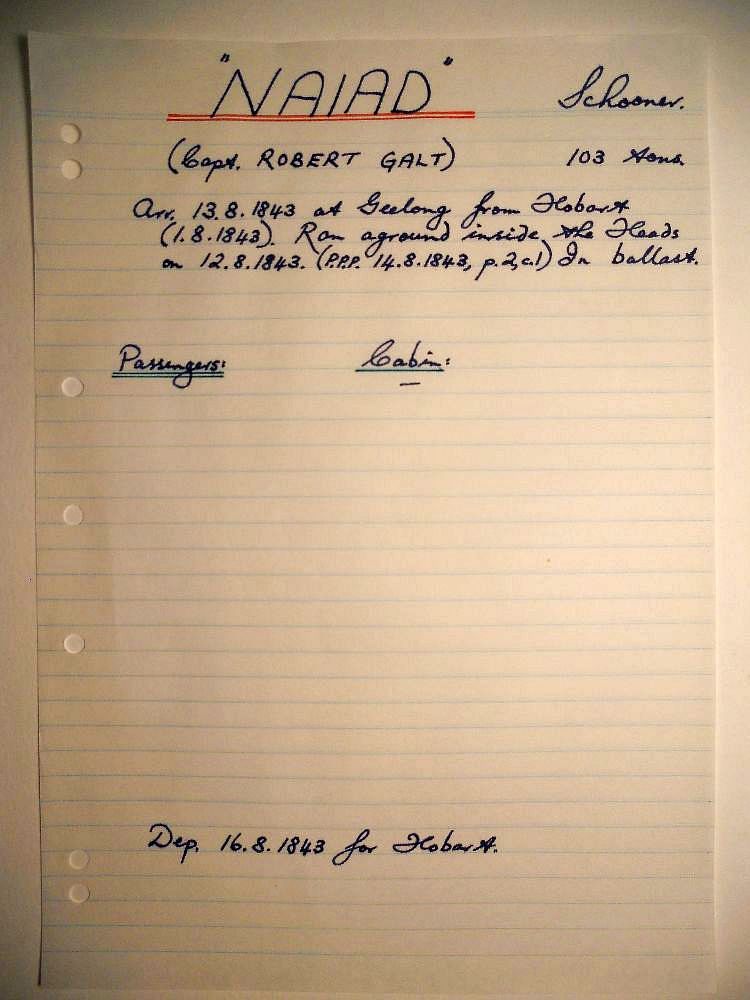 "NAIAD" Schooner.
(Capt. ROBERT GALT) 103 tons.
Arr. 13.8.1843 at Geelong from Hobart
(1.8.1843). Ran aground inside the Heads
on 12.8.1843. (P.P.P. 14.8.1843, p.2,c.1) In ballast.
Passengers: Cabin:
—
Dep. 16.8.1843 for Hobart.